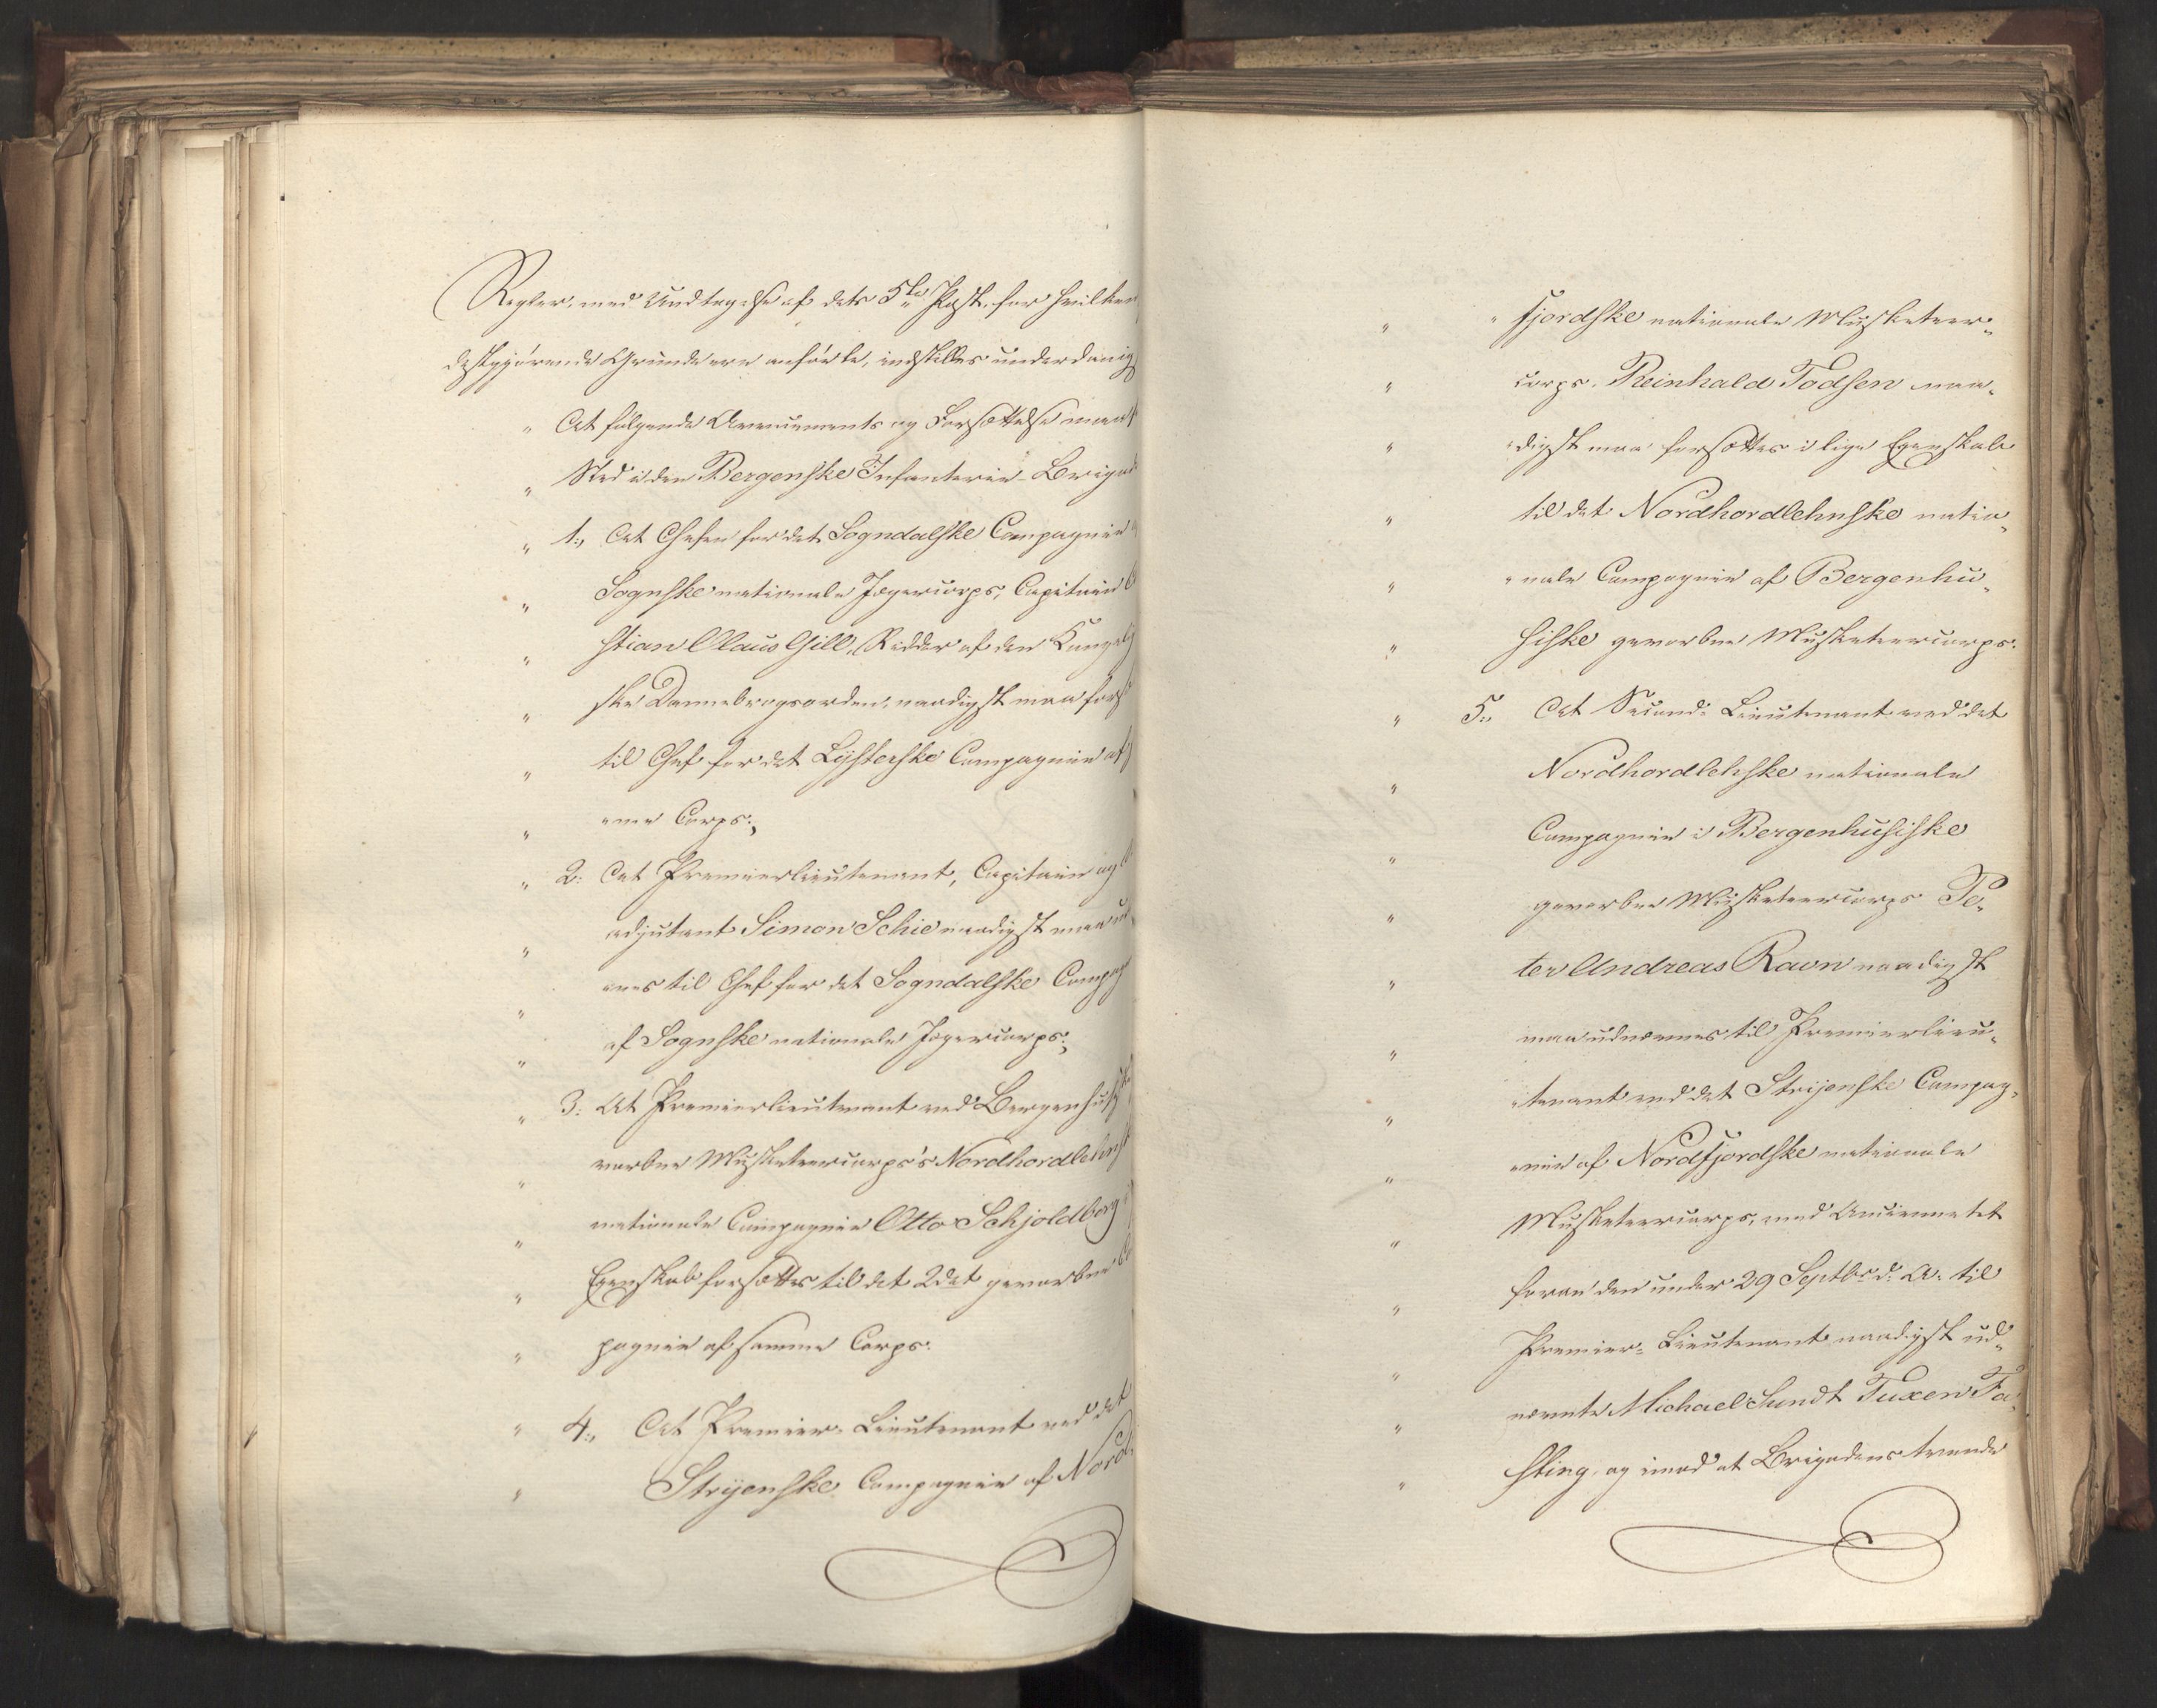 Regler, med Undtagelse af dets 5te Post, for hvilken
destgjörende Grunde ere anförte, indstilles underdanig
" At følgende Avancements og Forsættelse maa
" Sted i den Bergenske Infanterie-Brigade
" 1., At Chefen for det Sogndalske Compagnie
" Sognske nationale Jægercorps, Capitain
" stian Claus Gill, Ridder af den Kongelig
" ske Dannebrogsorden, naadigst maa fors
" til Chef for det Lÿsterske Compagnie af
" "me Corps.,
" 2. At Premierlieutenant, Capitain og
" adjutant Simon Schie naadigst maa ud
" "nes til Chef for det Sogndalske Compag
" af Sognske nationale Jægercorps.,
" 3. At Premierlieutenant ved Bergenhusiske
" vorbne Musketeercorps's Nordhordlehnsk
" nationale Compagnie Otto Schjoldborg
" Egenskab forsættes til det 2det gevorbne
" pagnie af samme Corps.
" 4., At Premier-Lieutenant ved det
" Strÿenske Compagnie af Nord
" "fjordske nationale Musketeer-
" corps. Reinhald Todsen naa-
" "digst maa forsættes i lige Egenskab
" til det Nordhordlehnske natio-
" "nale Compagnie af Bergenhu-
" siske gevorbne Musketeercorps.
" 5., At Second-Lieutenant ved det
" Nordhordlehske nationale
" Compagnie i Bergenhusiske
" gevorbne Musketeercorps Pe-
" ter Andreas Ravn naadigst
" maa udnævnes til Premierlieu-
" "tenant ved det Strijenske Compag-
" "nie af Nordfjordske nationale
" Musketeercorps, med Anciennetet
" foran den under 29 Septbr d. A. til
" Premier-Lieutenant naadigst ud-
" nævnte Michael Sundt Tuxen Fa-
" sting, og imod at Brigadens tvende